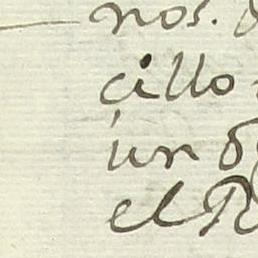 nos.
cillo
un
el